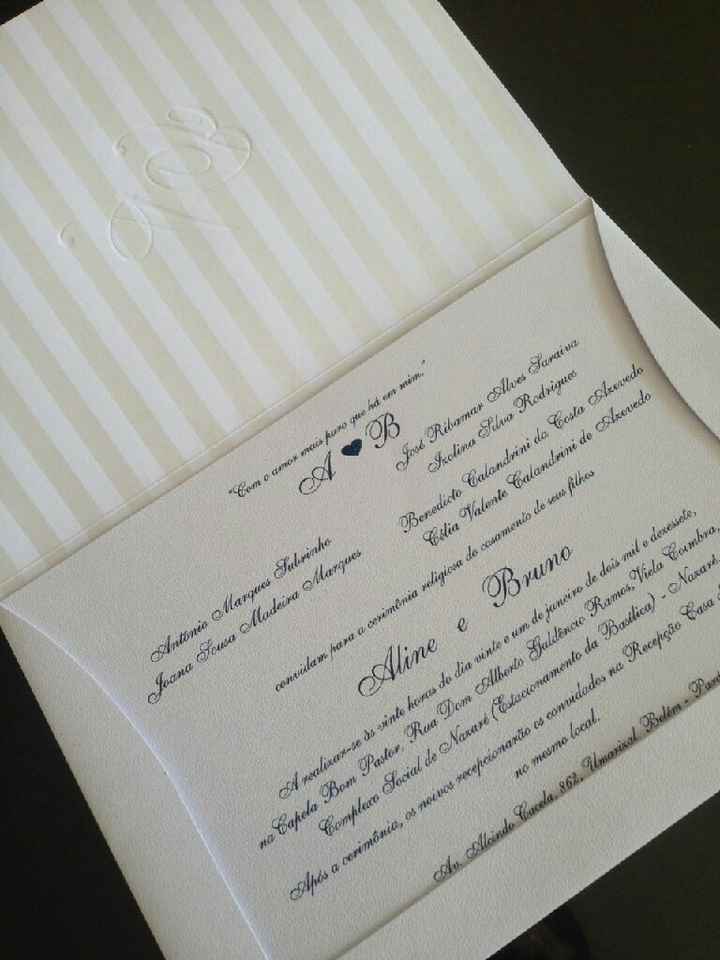 "Com o amor mais puro que há em mim."
A B
José Ribamar Alves Saraiva
Izolina Silva Rodrigues
Benedicto Calandrini da Costa Azevedo
Célia Valente Calandrini de Azevedo
Antônio Marques Subrinho
Joana Sousa Madeira Marques
convidam para a cerimônia religiosa de casamento de seus filhos
Aline e Bruno
A realizar-se às vinte horas do dia vinte e um de janeiro de dois mil e dezessete,
na Capela Bom Pastor, Rua Dom Alberto Galdêncio Ramos, Viela Coimbra,
Complexo Social de Nazaré (Estacionamento da Basílica) - Nazaré.
Após a cerimônia, os noivos recepcionarão os convidados na Recepção Casa
no mesmo local.
Av. Alcindo Cacela, 862, Umarizal. Belém -